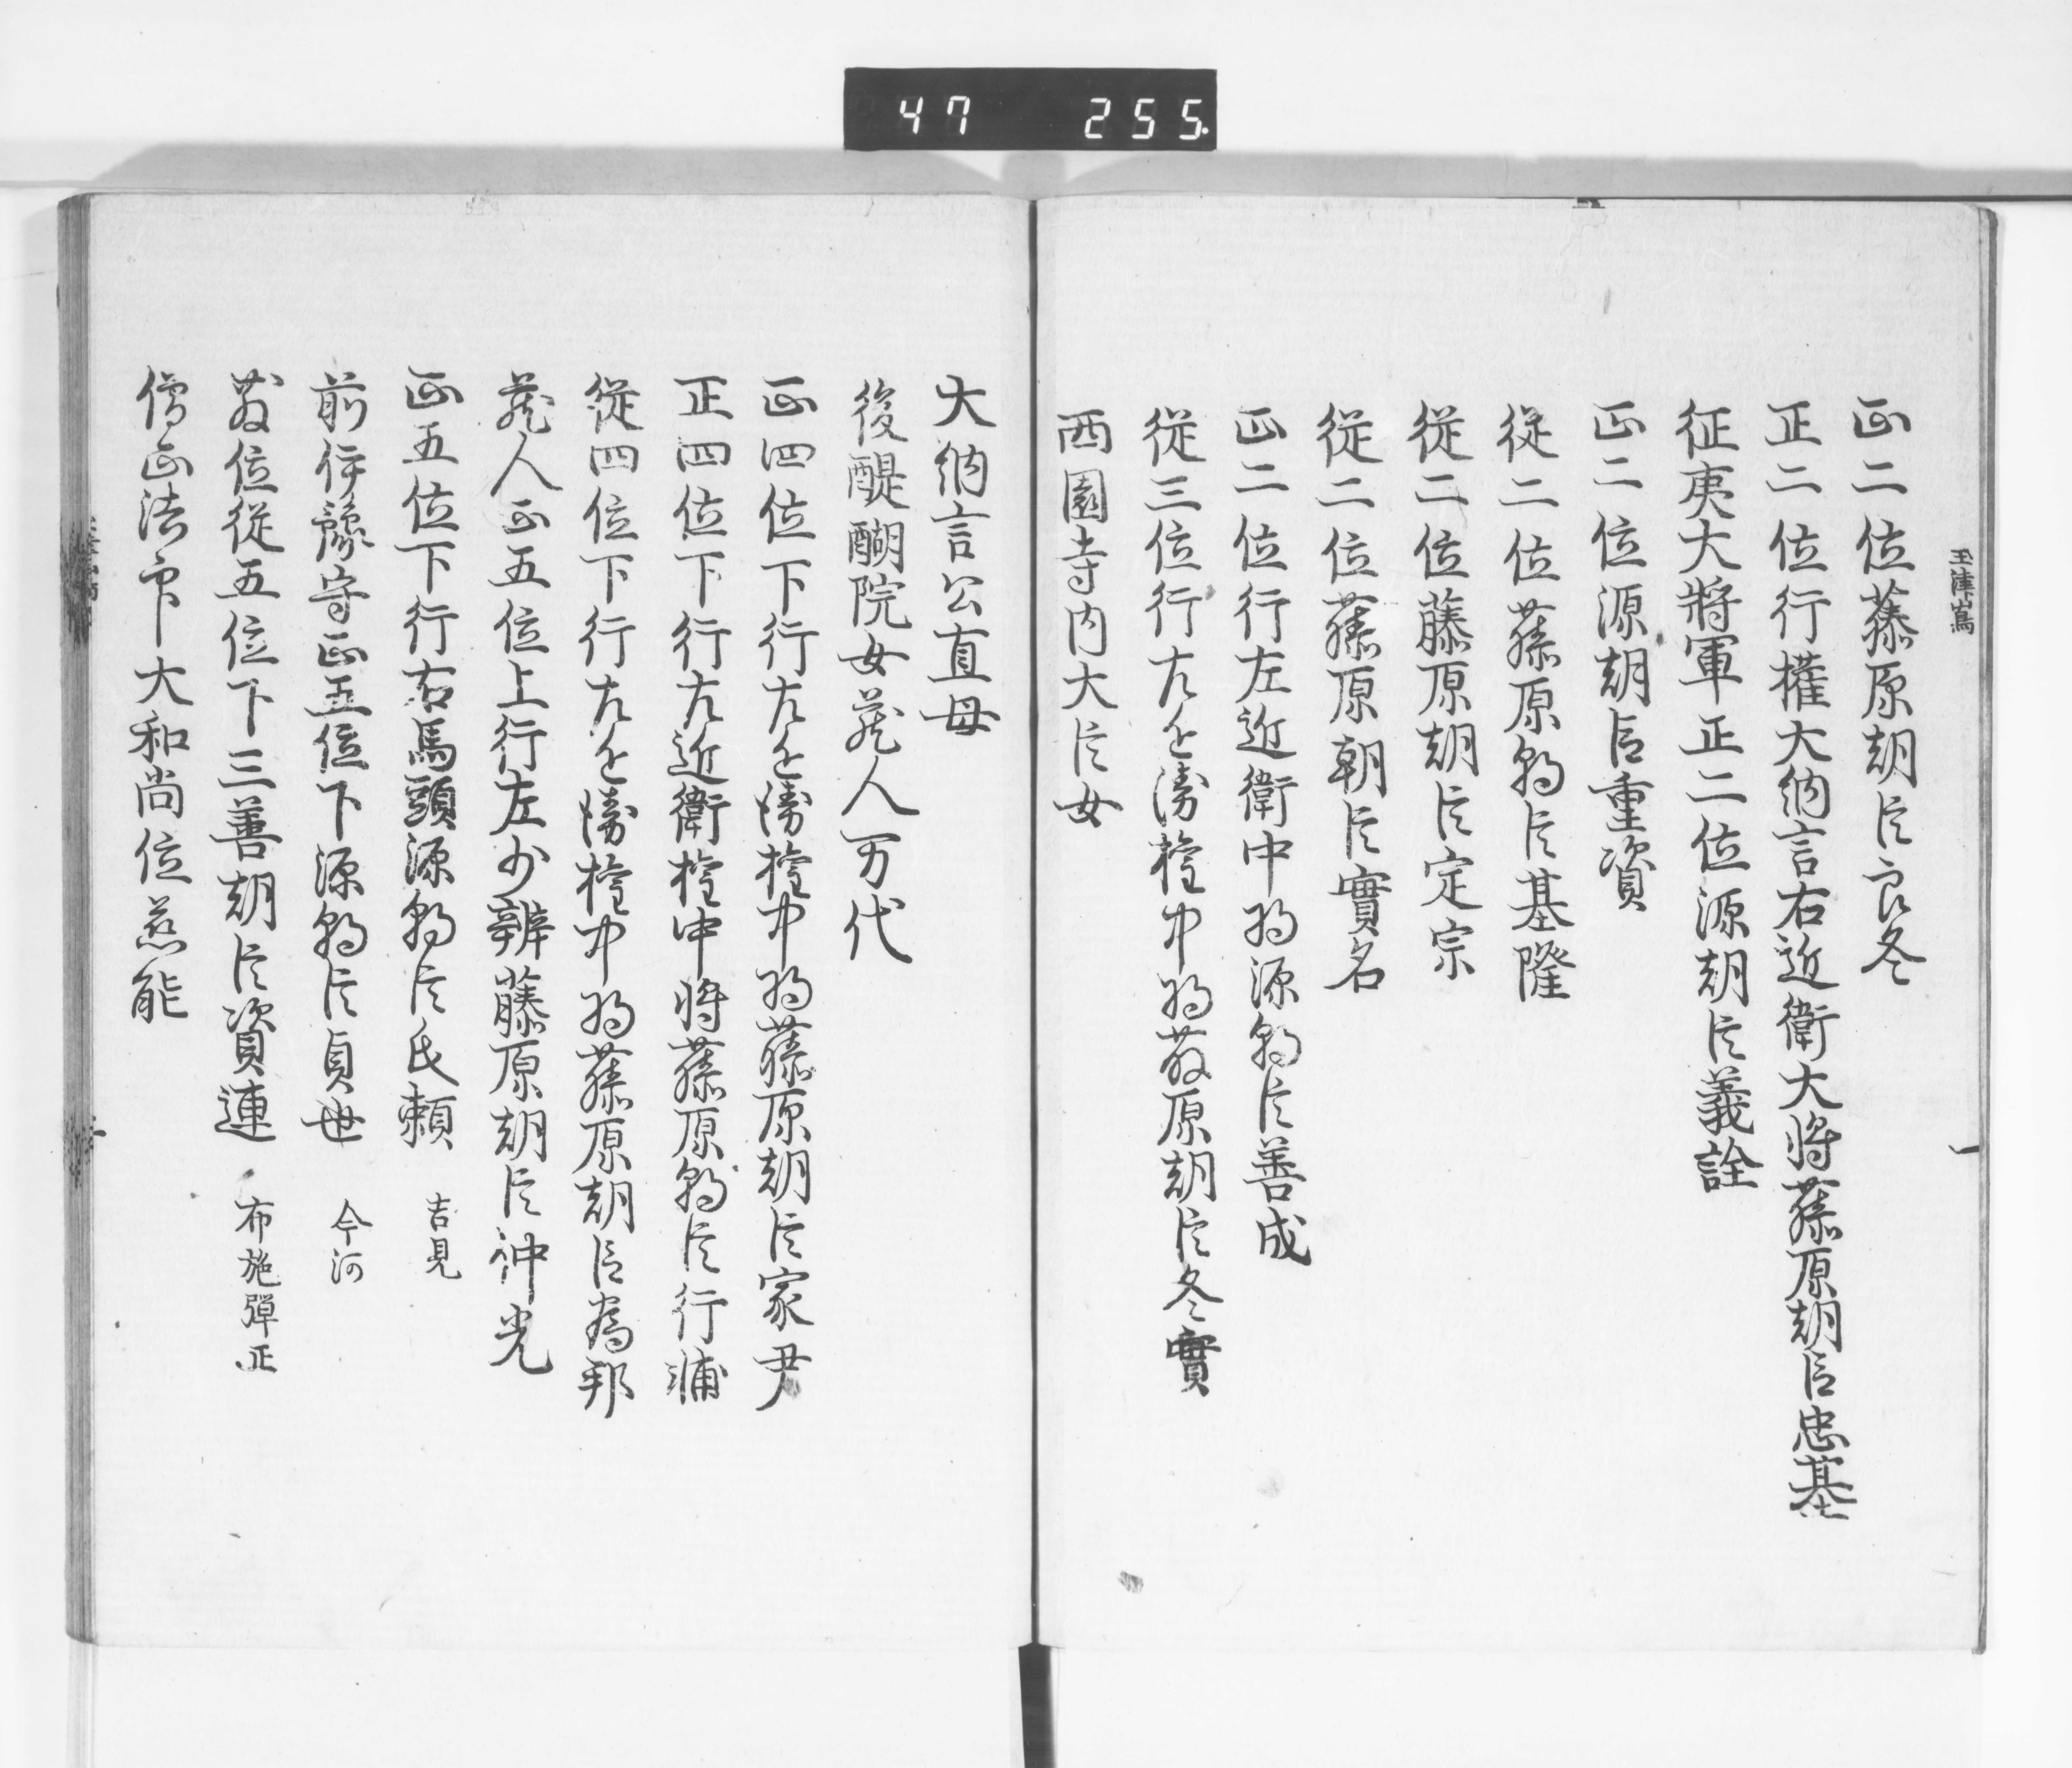 47 255.
玉津嶌
一
正二位藤原朝臣良冬
正二位行權大納言右近衛大将藤原朝臣忠基
征夷大將軍正二位源朝臣義詮
正二位源朝臣重資
従二位藤原朝臣基隆
従二位藤原朝臣定宗
従二位藤原朝臣實名
正二位行左近衛中将源朝臣善成
従三位行左近衛権中将藤原朝臣冬實
西園寺内大臣女
大納言公直母
後醍醐院女蔵人万代
正四位下行左近衛権中将藤原朝臣家尹
正四位下行左近衛権中将藤原朝臣行浦
従四位下行左近衛権中将藤原朝臣為邦
蔵人正五位上行左少辨藤原朝臣仲光
正五位下行右馬頭源朝臣氏頼 吉見
前伊豫守正五位下源朝臣貞世 今河
散位従五位下三善朝臣資連 布施弾正
僧正法印大和尚位慈能